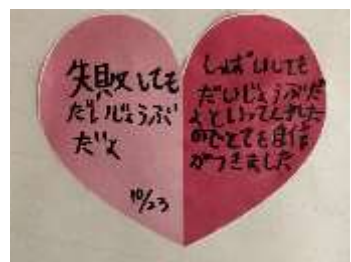 失敗しても
だいじょうぶ
だよ
10/23
しっぱいしても
だいじょうぶだ
よといってくれた
のでとても自信
がつきました